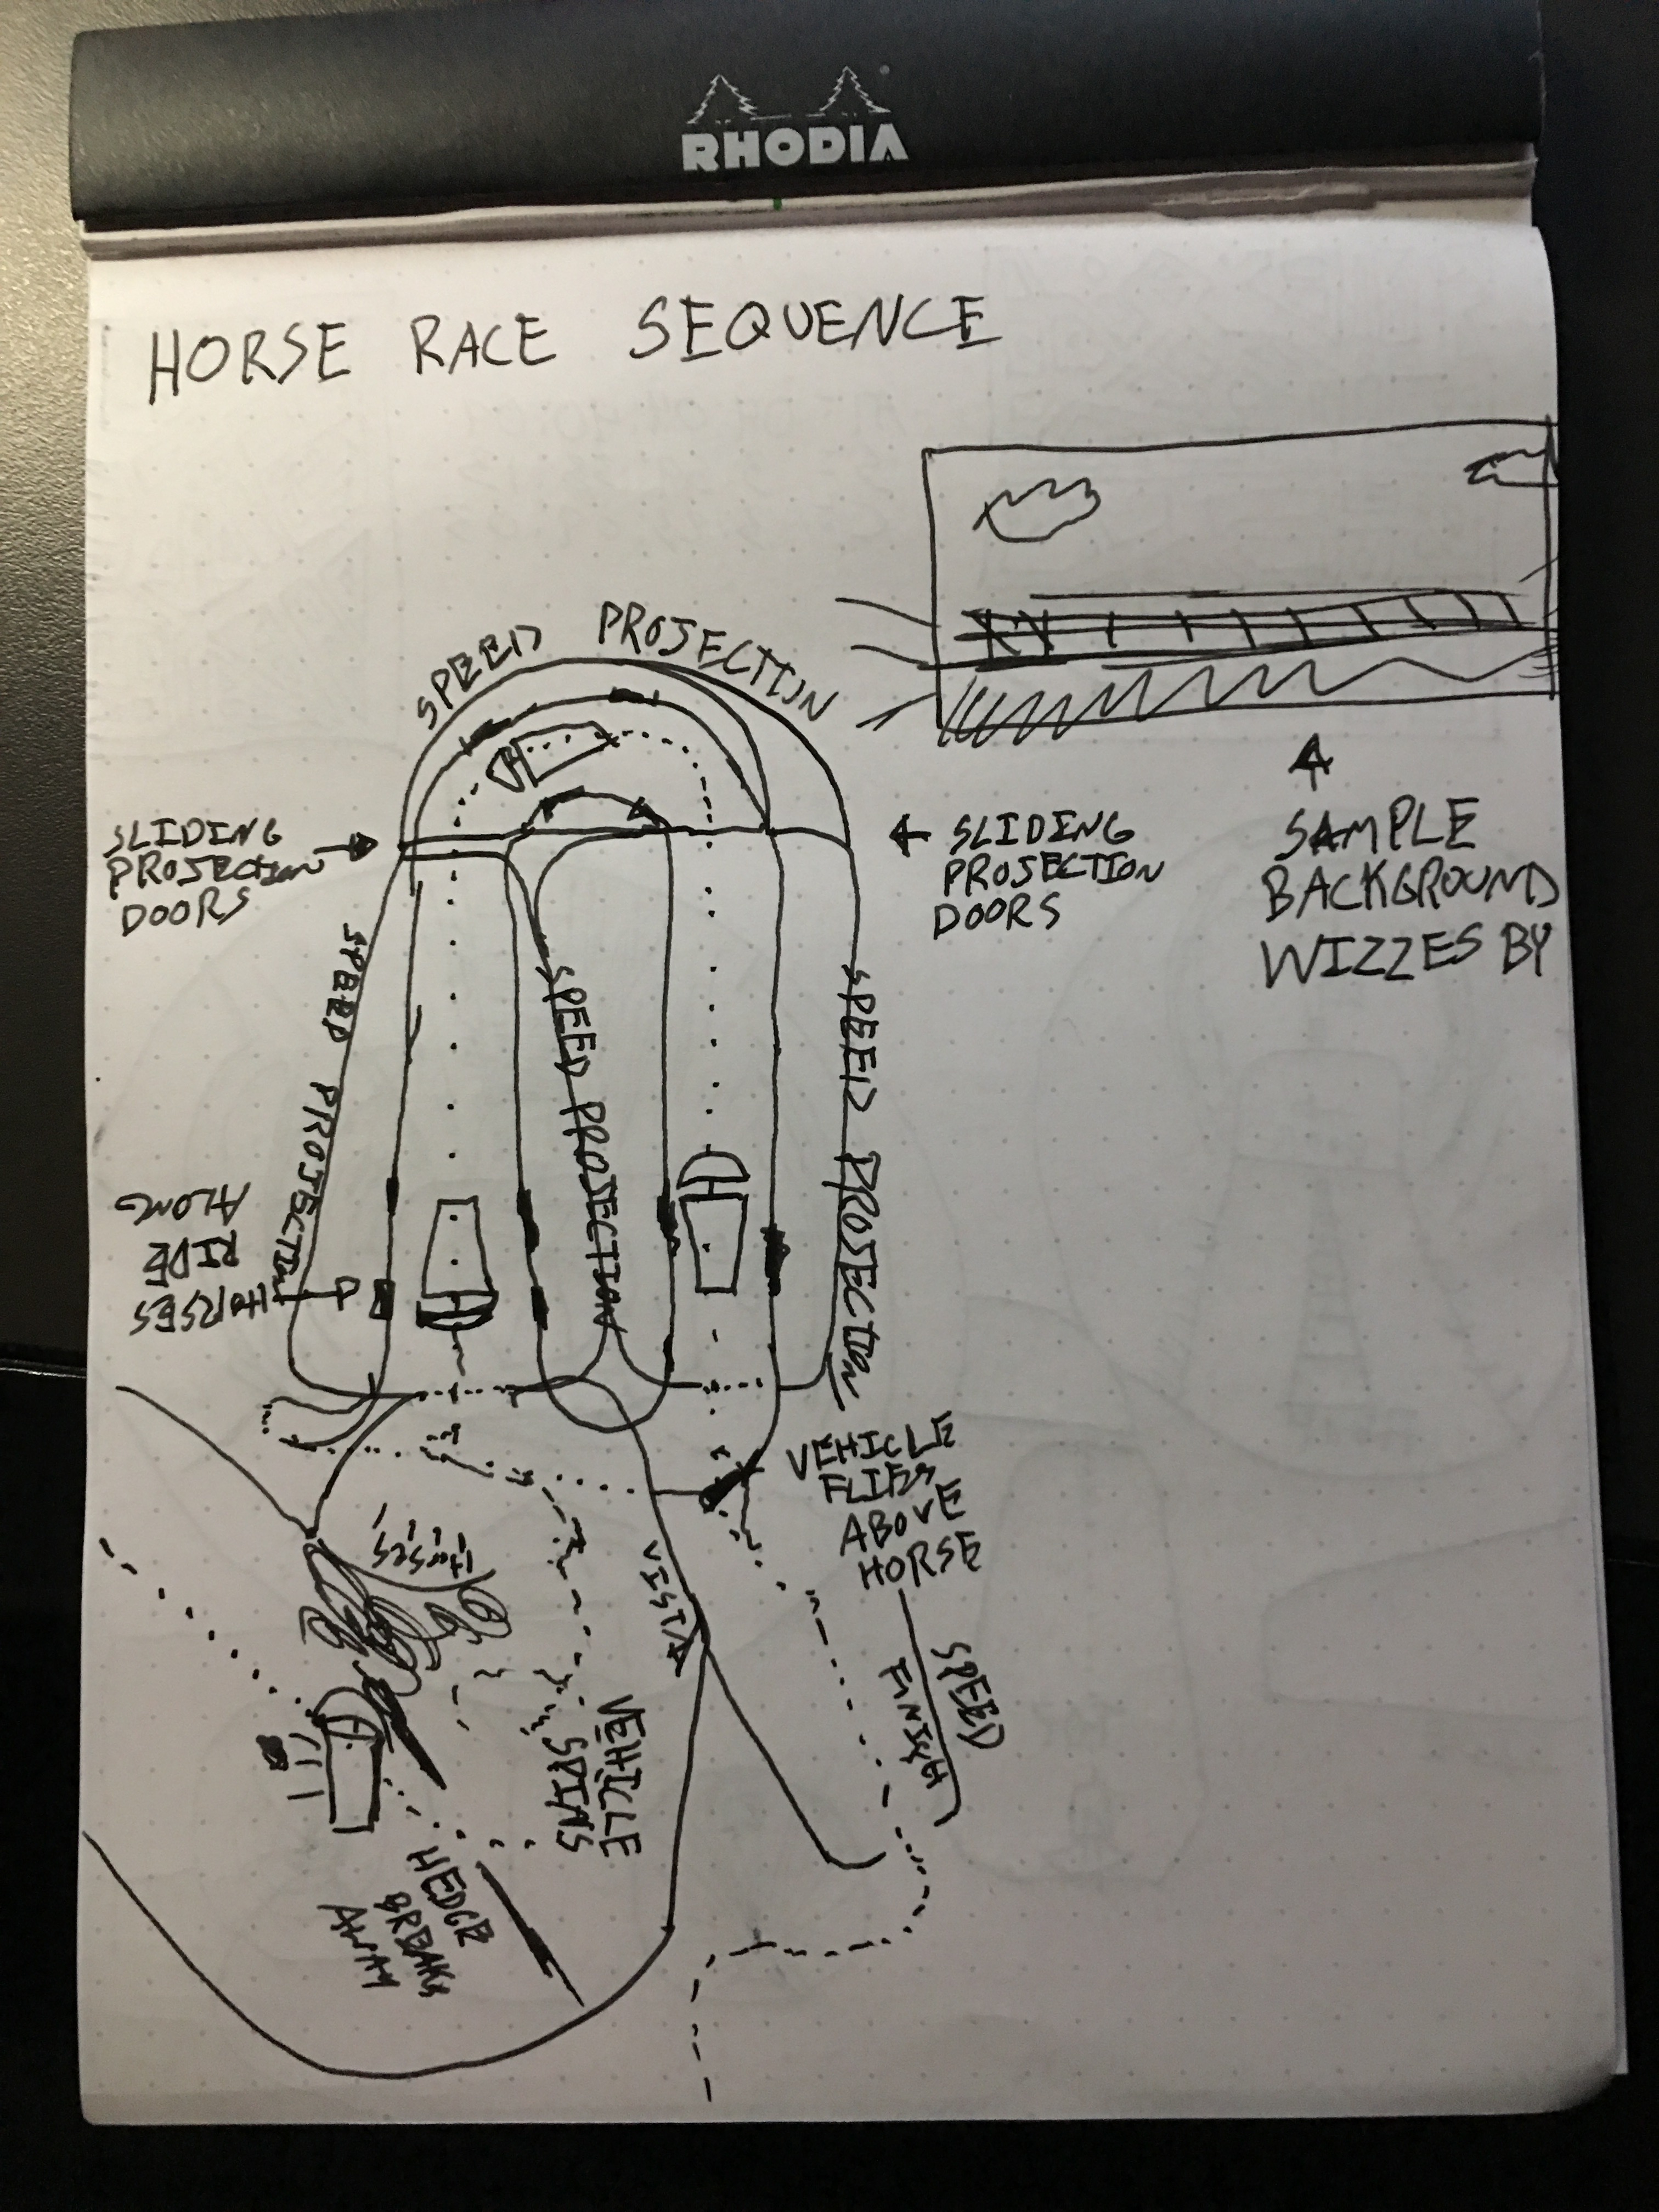 RHODIA
HORSE RACE SEQUENCE
SPEED PROJECTION
SLIDING
PROJECTION
DOORS
SLIDING
PROJECTION
DOORS
SAMPLE
BACKGROUND
WIZZES BY
SPEED PROJECTION
SPEED PROJECTION
SPEED PROJECTION
HORSES
RIDE
ALONG
VEHICLE
FLIES
ABOVE
HORSE
HORSES
VISTA
SPEED
FINISH
VEHICLE
SPINS
HEDGE
BREAKS
AWAY